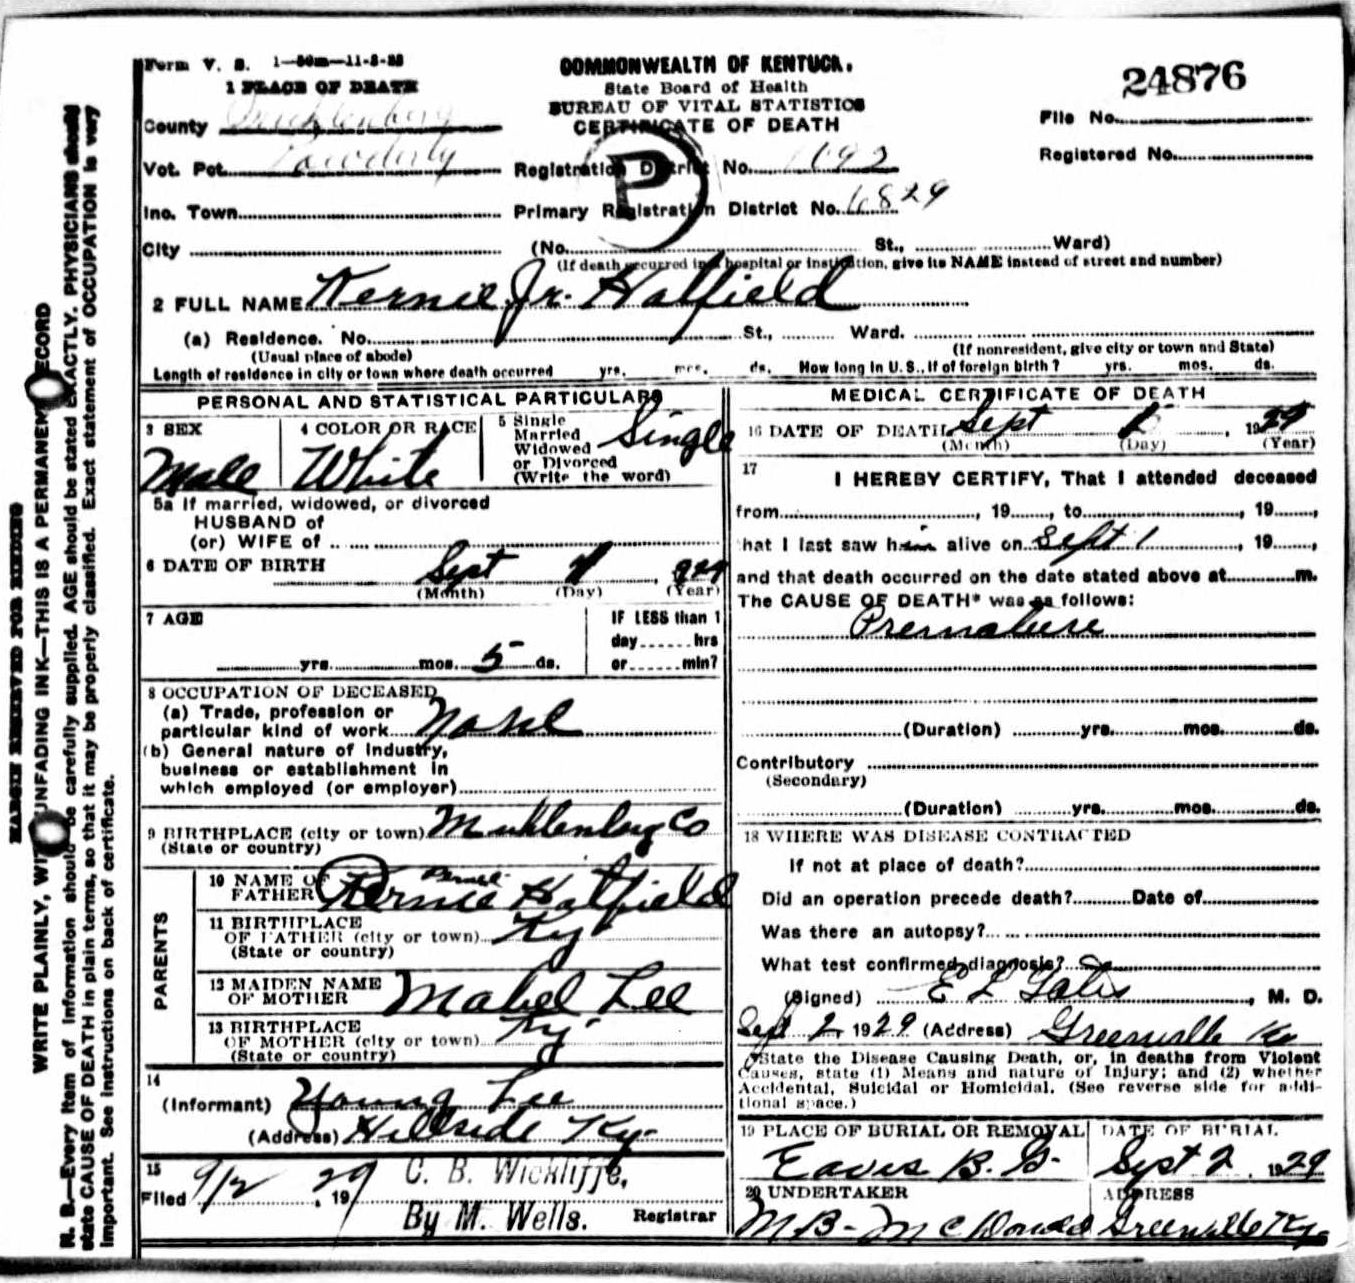 Form V. S. 1—50m—11-8-28
COMMONWEALTH OF KENTUCKY.
24876
1 PLACE OF DEATH
State Board of Health
BUREAU OF VITAL STATISTICS
CERTIFICATE OF DEATH
P
County Muhlenberg
File No.
Vot. Pct. Powderly
Registration District No. 1092
Registered No.
Inc. Town
Primary Registration District No. 6829
City (No. St., Ward)
(If death occurred in a hospital or institution, give its NAME instead of street and number)
2 FULL NAME Kernie Jr. Hatfield
(a) Residence. No. St., Ward.
(Usual place of abode) (If nonresident, give city or town and State)
Length of residence in city or town where death occurred yrs. mos. ds. How long in U. S., if of foreign birth? yrs. mos. ds.
PERSONAL AND STATISTICAL PARTICULARS
3 SEX Male
4 COLOR OR RACE White
5 Single
Married
Widowed
or Divorced
(Write the word) Single
5a If married, widowed, or divorced
HUSBAND of
(or) WIFE of
6 DATE OF BIRTH Sept
(Month) (Day) (Year)
7 AGE
yrs. mos. 5 ds.
IF LESS than 1
day hrs
or min?
8 OCCUPATION OF DECEASED
(a) Trade, profession or
particular kind of work
(b) General nature of Industry,
business or establishment in
which employed (or employer)
9 BIRTHPLACE (city or town) Muhlenberg Co
(State or country)
PARENTS
10 NAME OF
FATHER Hatfield
11 BIRTHPLACE
OF FATHER (city or town) Ky
(State or country)
12 MAIDEN NAME
OF MOTHER Mabel Lee
13 BIRTHPLACE
OF MOTHER (city or town) Ky
(State or country)
14
(Informant) Young Lee
(Address) Hillside Ky.
15
Filed 9/2, 1929 C. B. Wickliffe,
By M. Wells. Registrar
MEDICAL CERTIFICATE OF DEATH
16 DATE OF DEATH Sept 1929
(Month) (Day) (Year)
17
I HEREBY CERTIFY, That I attended deceased
from , 19 , to , 19 ,
that I last saw him alive on Sept 1 , 19 ,
and that death occurred on the date stated above at m.
The CAUSE OF DEATH* was as follows:
Premature
(Duration) yrs. mos. ds.
Contributory
(Secondary)
(Duration) yrs. mos. ds.
18 WHERE WAS DISEASE CONTRACTED
If not at place of death?
Did an operation precede death? Date of
Was there an autopsy?
What test confirmed diagnosis?
(Signed) E L Gates, M. D.
Sept 2 1929 (Address) Greenville Ky
*State the Disease Causing Death, or, in deaths from Violent
Causes, state (1) Means and nature of Injury; and (2) whether
Accidental, Suicidal or Homicidal. (See reverse side for addi-
tional space.)
19 PLACE OF BURIAL OR REMOVAL DATE OF BURIAL
Eaves B. G. Sept 2, 1929
20 UNDERTAKER ADDRESS
M B- McDonald Greenville Ky.
MARGIN RESERVED FOR BINDING
WRITE PLAINLY, WITH UNFADING INK—THIS IS A PERMANENT RECORD
N. B.—Every item of information should be carefully supplied. AGE should be stated EXACTLY. PHYSICIANS should
state CAUSE OF DEATH in plain terms, so that it may be properly classified. Exact statement of OCCUPATION is very
important. See instructions on back of certificate.